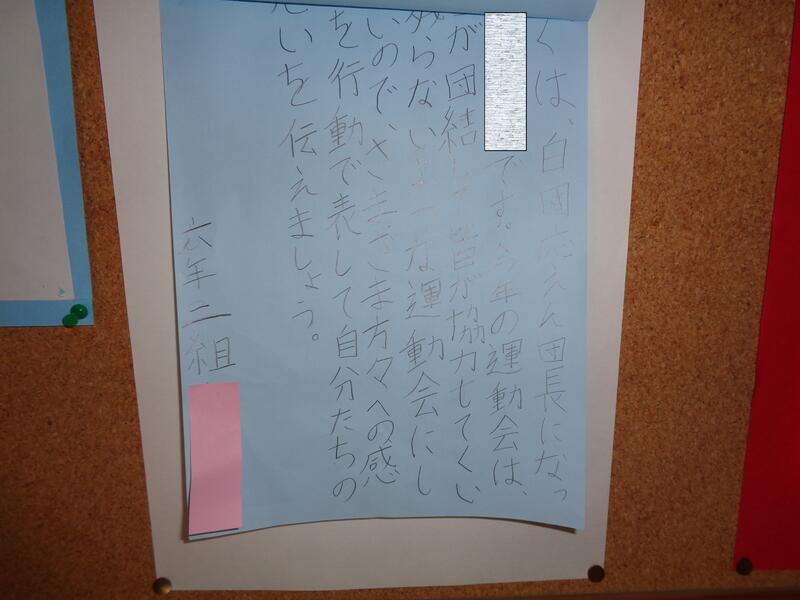 くは、白団応えん団長になっ
です。今年の運動会は、
が団結して皆が協力してくい
残らないような運動会にし
いので、さまざま方々への感
を行動で表して自分たちの
いを伝えましょう。
六年二組